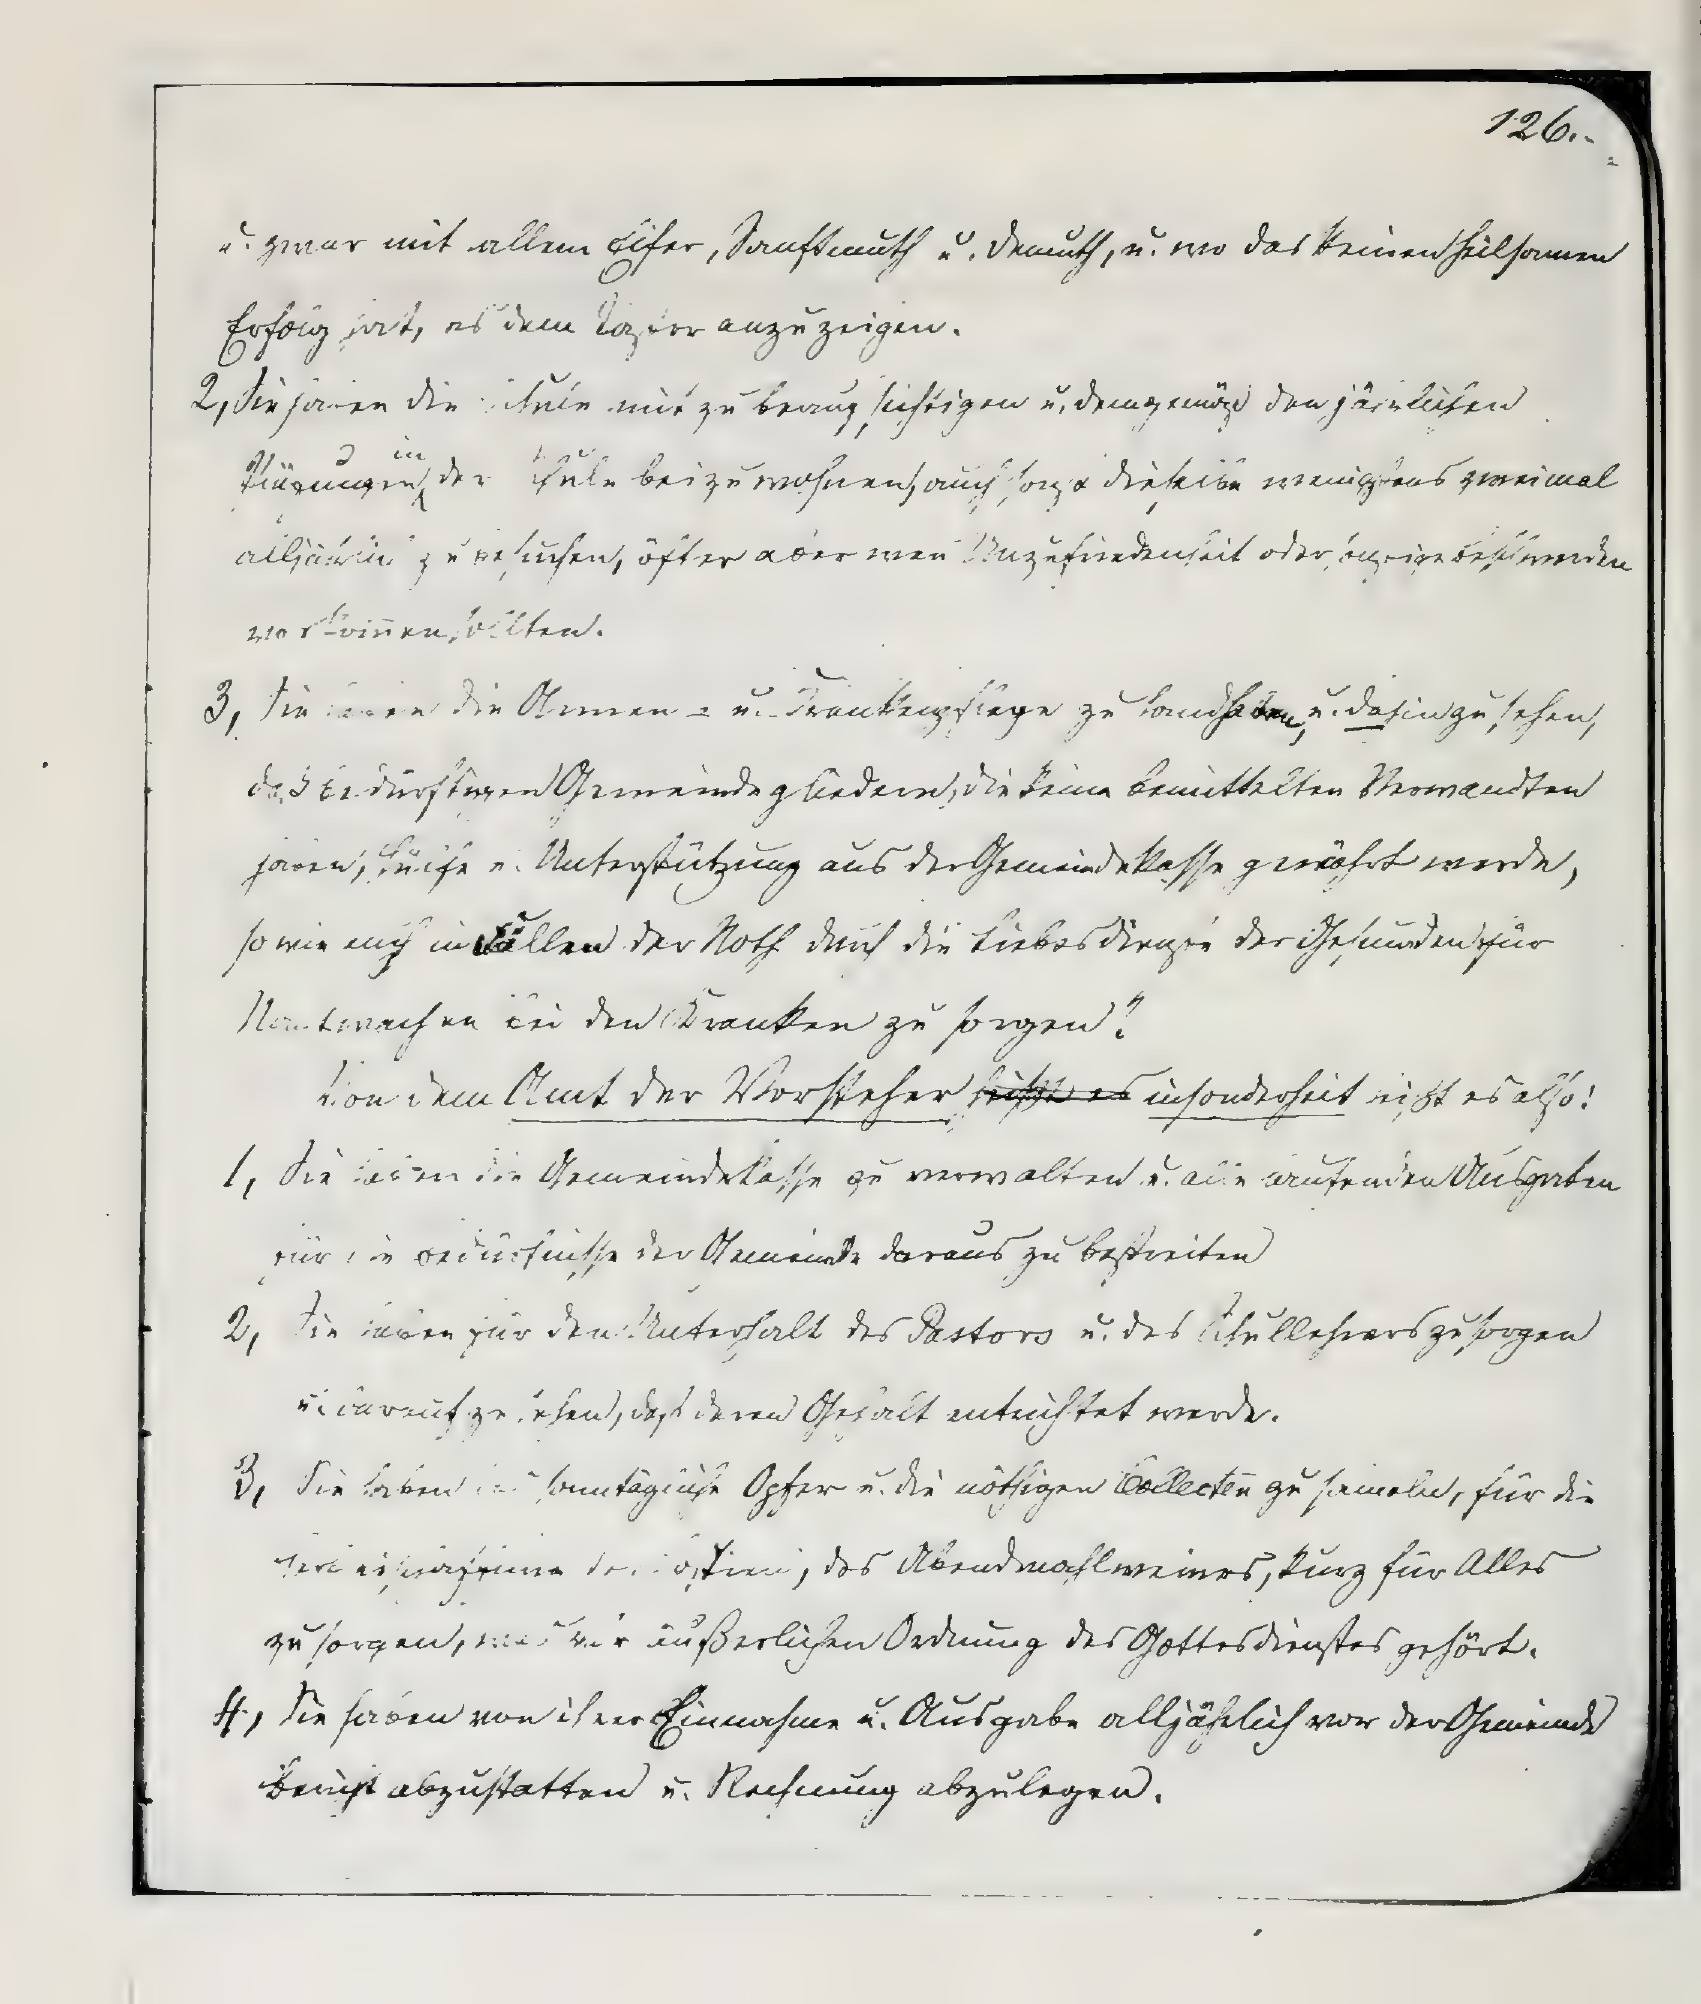 126.
u. zwar mit allem Eifer, Sanftmuth u. Demuth, u. wo das keinen heilsamen
Erfolg hat, es dem Pastor anzuzeigen.
2, Sie haben die Schule mit zu beaufsichtigen u. demgemäß den jährlichen
Prüfungen in der Schule beizuwohnen, auch sonst dieselbe wenigstens zweimal
alljährlich zu besuchen, öfter aber wen̄ Unzufriedenheit oder sonstige Beschwerden
vorkom̄en sollten.
3, Sie haben die Armen- u. Krankenpflege zu handhaben, u. dahin zu sehen,
daß bedürftigen Gemeindegliedern, die keine bemittelten Verwandten
haben, Hülfe u. Unterstützung aus der Gemeindekasse gewährt werde,
so wie auch in Fällen der Noth durch die Liebesdienste der Gesunden für
Nachtwachen bei den Kranken zu sorgen."
Von dem Amt der Vorsteher heißt es insonderheit heißt es also:
1, Sie haben die Gemeindekasse zu verwalten u. alle laufenden Ausgaben
für die Bedürfnisse der Gemeinde daraus zu bestreiten
2, Sie haben für den Unterhalt des Pastors u. des Schullehrers zu sorgen
u. darauf zu sehen, daß deren Gehalt entrichtet werde.
3, Sie haben das sonntägliche Opfer u. die nöthigen Collecten zu sam̄eln, für die
der Hostien, des Abendmahlweines, kurz für Alles
zu sorgen, was zur äußerlichen Ordnung des Gottesdienstes gehört.
4, Sie haben von ihrer Einnahme u. Ausgabe alljährlich vor der Gemeinde
Bericht abzustatten u. Rechnung abzulegen.